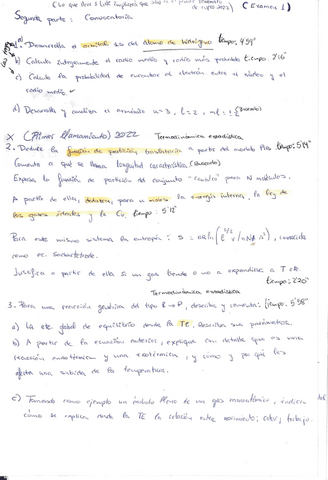 (Examen 1)
Segunda parte: Convocatoria
a). Desarrolla el orbital 2s del átomo de hidrógeno tiempo: 4'59"
b) Calcula íntegramente el radio medio y radio más probable tiempo: 2'16"
c) Calcula la probabilidad de encontrar el electrón entre el núcleo y el
radio medio.
d) Desarrolla y analiza el armónico n=3, l=2, ml=1
X (Primer llamamiento) 2022 Termodinámica estadística
2. Deduce la función de partición translacional a partir del modelo tiempo: 5'49"
Comenta a qué se llama longitud característica
Expresa la función de partición del conjunto "cuadro" para N moléculas.
A partir de ella, deduzca, para n moles, la energía interna, la ley de
los gases ideales y la Cv, tiempo: 5'12"
Para este mismo sistema la entropía: S = nR ln( conocida
como ec. Sackur-tetrode.
Justifica a partir de ella si un gas tiende o no a expandirse a T cte.
tiempo: 2'20"
Termodinámica estadística
3. Para una reacción genérica del tipo R→P, describa y comenta: tiempo: 5'58"
a) La cte. global de equilibrio desde la TE. Describa sus parámetros.
b) A partir de la ecuación anterior, explique con detalle que es una
reacción endotérmica y una exotérmica, y como y por qué les
afecta una subida de la temperatura.
c) Tomando como ejemplo un módulo de un gas monoatómico, indica
cómo se explica desde la TE la relación entre movimiento, calor, trabajo.